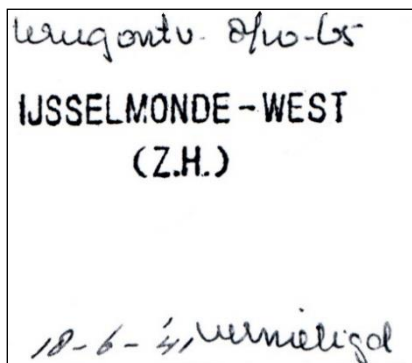 terugontv. 8/10-65
IJSSELMONDE-WEST
(Z.H.)
18-6-'41 vernietigd